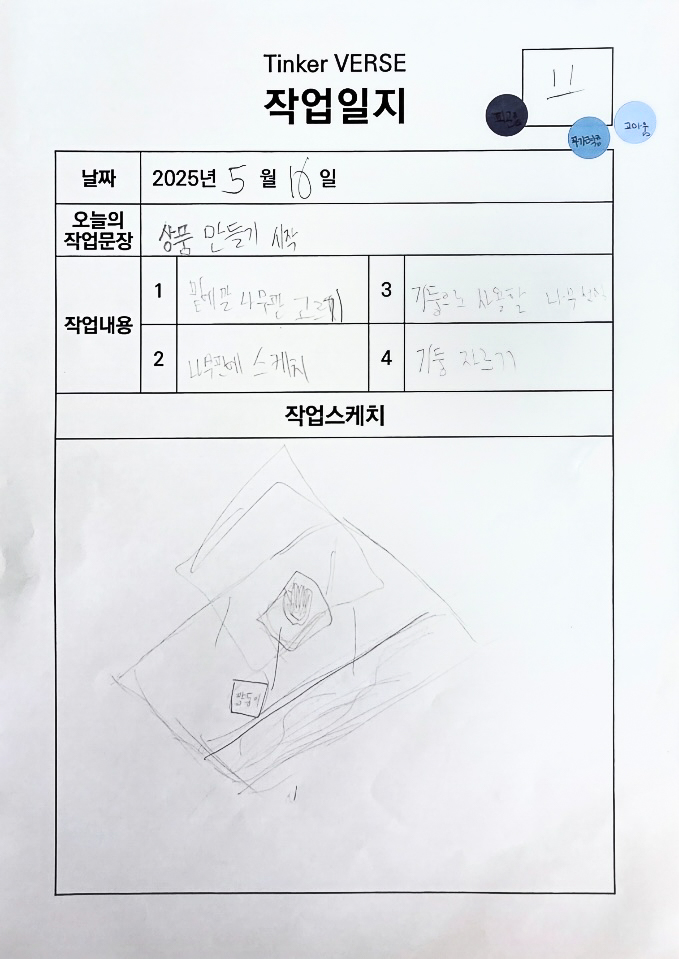 Tinker VERSE
작업일지
11
피고용
고마움
날짜
2025년 5월 10일
오늘의 작업문장
상품 만들기 시작
작업내용
1 밑에 깔 나무판 고르기
3 기둥으로 사용할 나무
2 나무판에 스케치
4 기둥 자르기
작업스케치